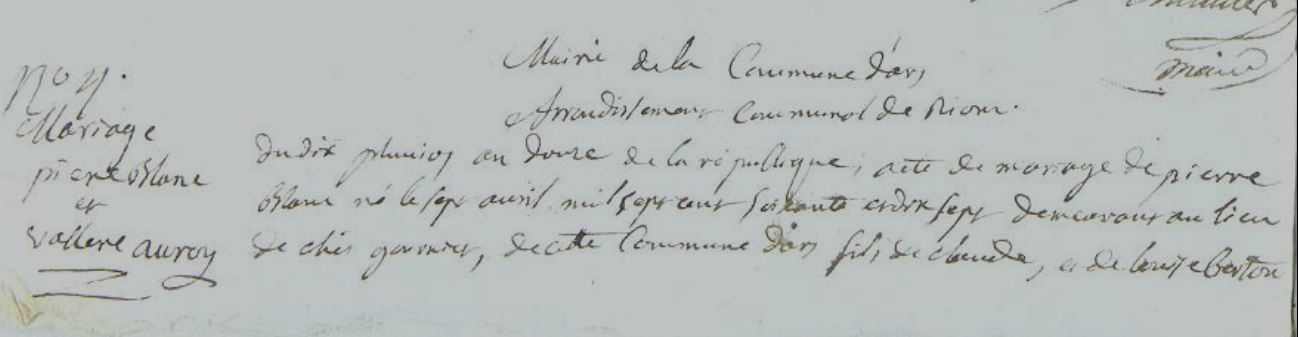 maire
Mairie de la Commune d'ars
Arrondissement Communal de Riom.
Mariage
pierre Blanc
et
vallerie auroy
Du dix pluvios an douze de la republique, acte de mariage de pierre
Blanc né le sept avril mil sept cent soixante et dix sept demeurant au lieu
de chés garnier, de cette Commune d'ars fils de claude, et de louise berton